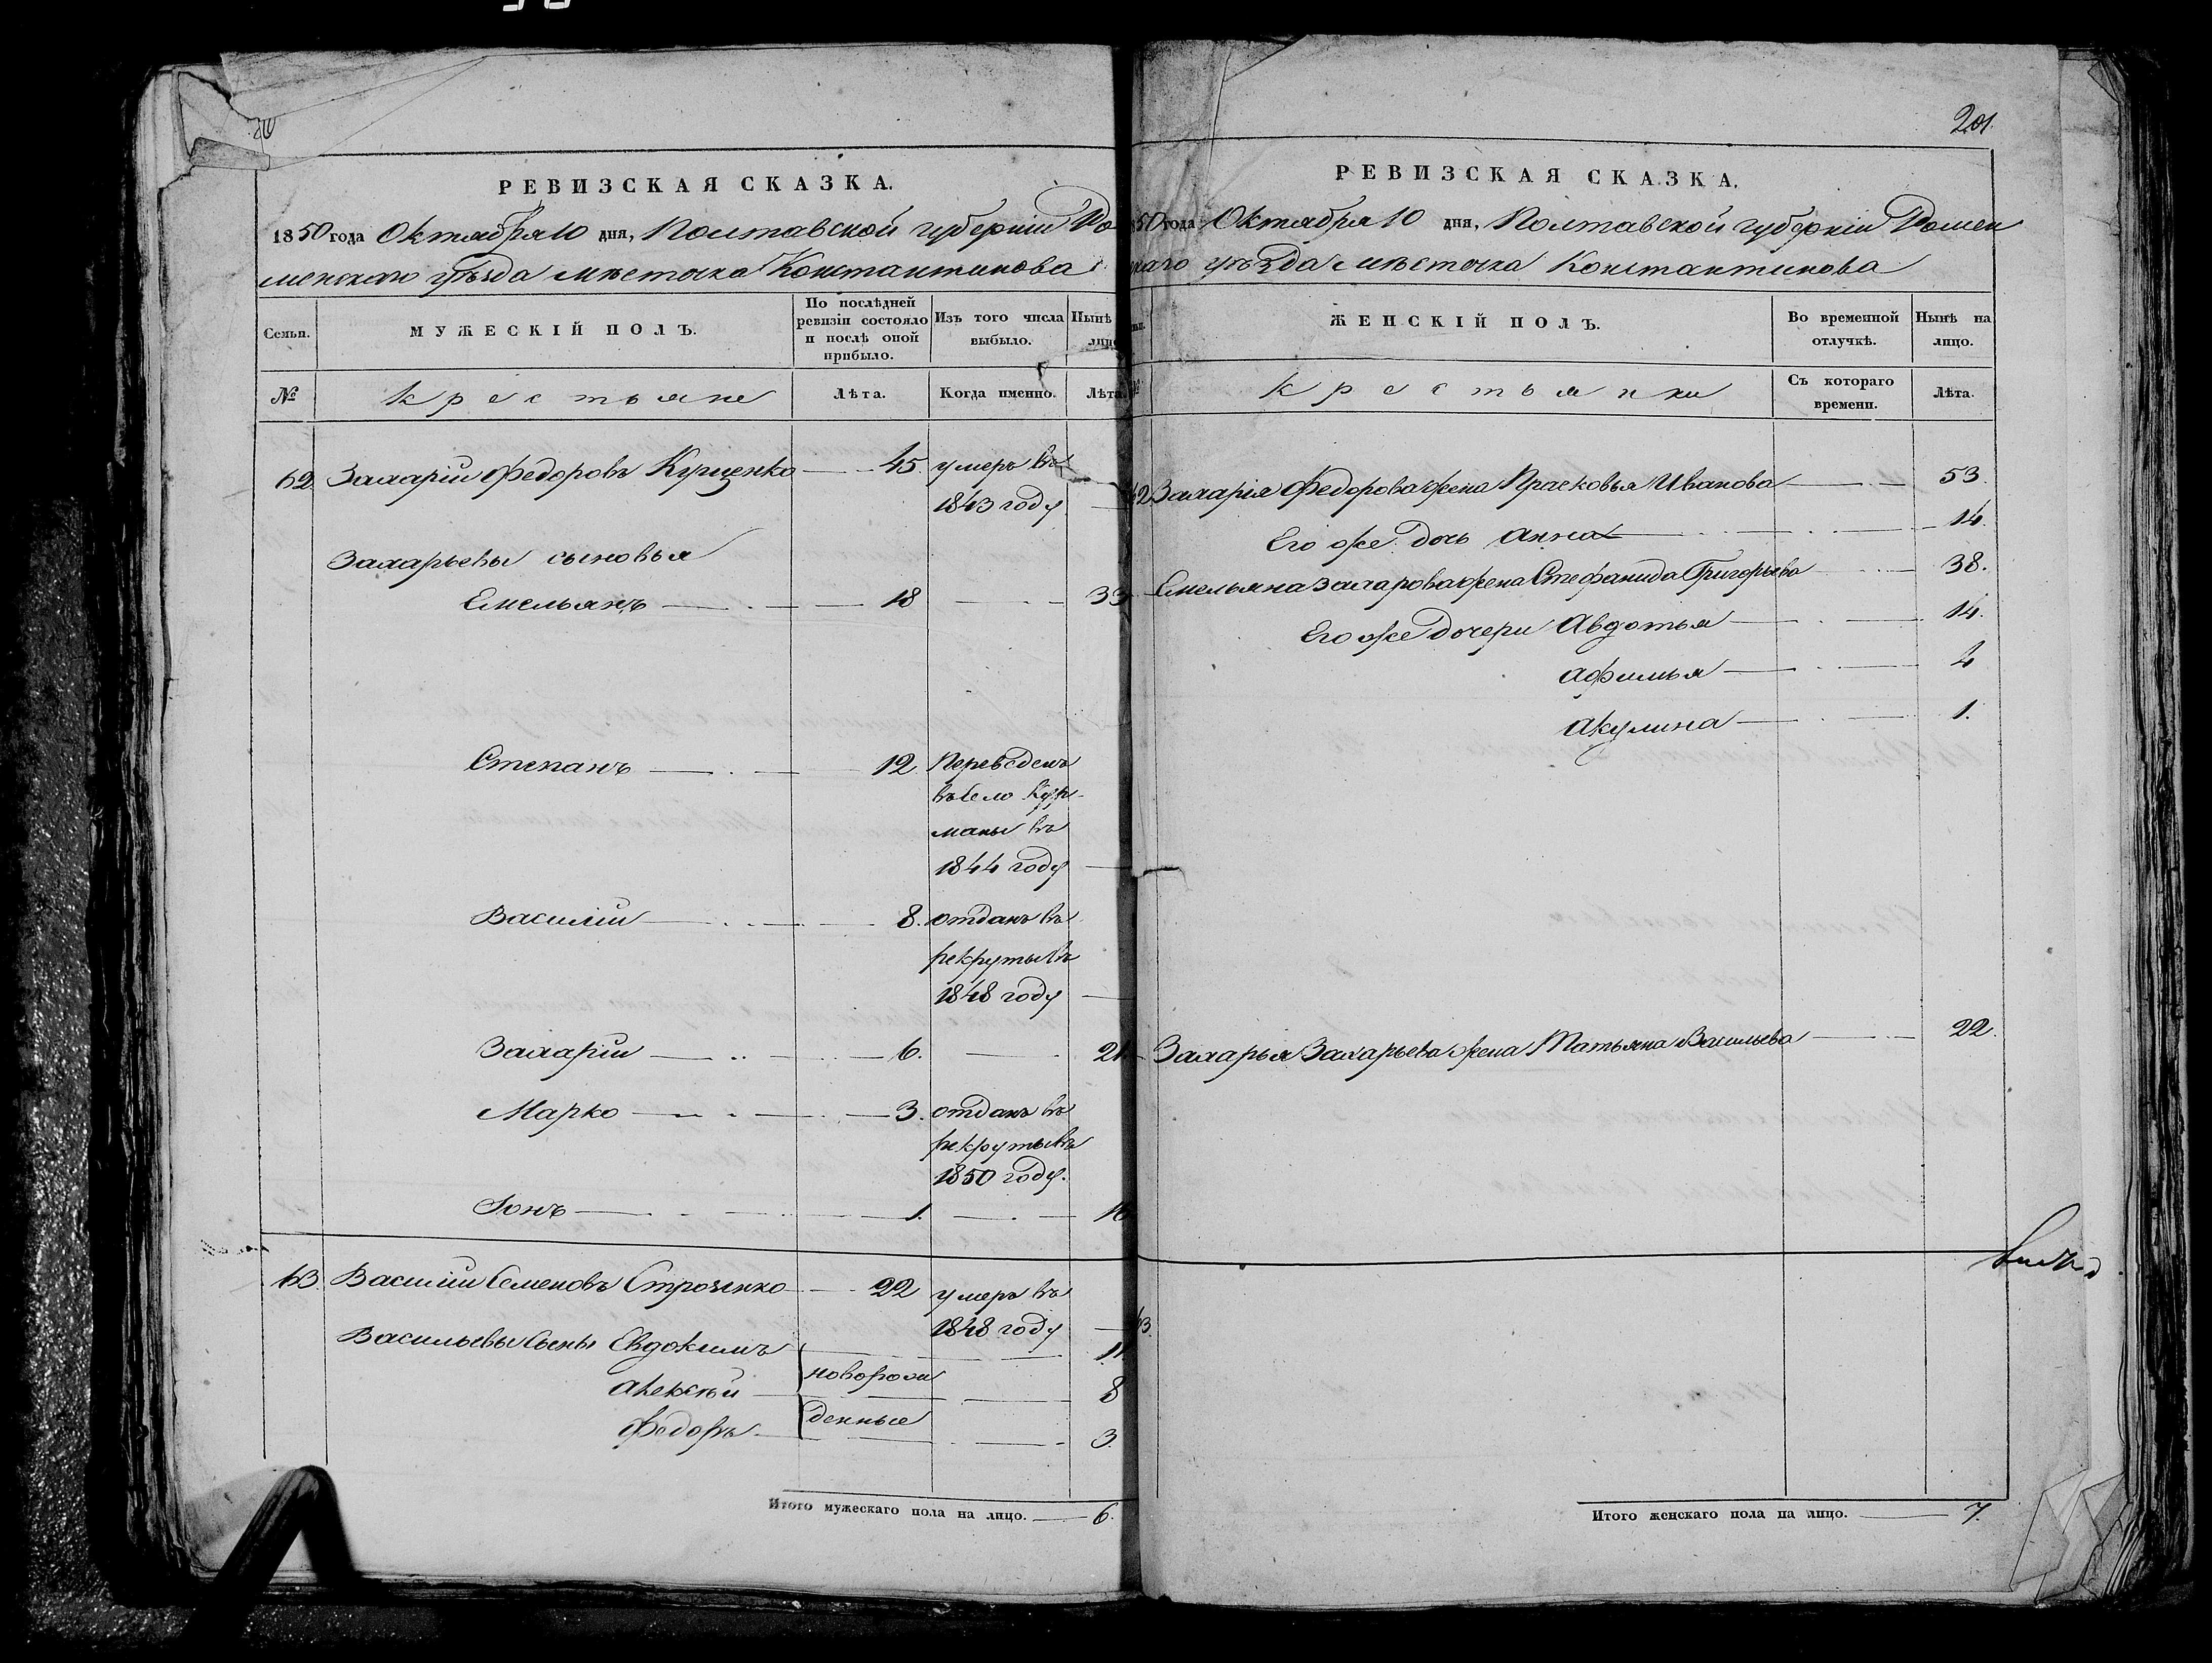 РЕВИЗСКАЯ СКАЗКА.
1850 года Октября 10 дня, Полтавской губерніи Ро
менскаго уѣзда мѣстечка Константинова
Семьи.
МУЖЕСКІЙ ПОЛЪ.
По послѣдней ревизіи состояло и послѣ оной прибыло.
Изъ того числа выбыло.
Нынѣ
лицо
№
Крестьяне
Лѣта.
Когда именно.
Лѣта.
62. Захарій Федоровъ Куценко 45. умеръ въ
1843 году
Захарьевы сыновья
Емельянъ 18 33
Степанъ 12 Переведенъ
въ село
маны въ
1844 году
Василій 8. отданъ въ
рекруты въ
1848 году
Захарій 6. 21.
Марко 3. отданъ въ
рекруты въ
1850 году.
Іонъ 1. 16
63. Василій Семеновъ Строченко 22 умеръ въ
1848 году
Васильевы сыны Евдокимъ 11.
новорож
Алексѣй 8
денные
Федоръ 3.
Итого мужескаго пола на лицо. 6.
201.
РЕВИЗСКАЯ СКАЗКА.
850 года Октября 10 дня, Полтавской губерніи Ромен
скаго уѣзда мѣстечка Константинова
ЖЕНСКІЙ ПОЛЪ.
Во временной отлучкѣ.
Нынѣ на лицо.
№
Крестьянки
Съ котораго времени.
Лѣта.
62 Захарія Федорова жена Прасковья Иванова 53.
Его же дочь Анна 14.
Емельяна Захарова жена Стефанида Григорьева 38.
Его же дочери Авдотья 14.
Афимья 4
Акулина 1.
Захарья Захарьева жена Татьяна Васильева 22.
63.
Итого женскаго пола на лицо. 7.